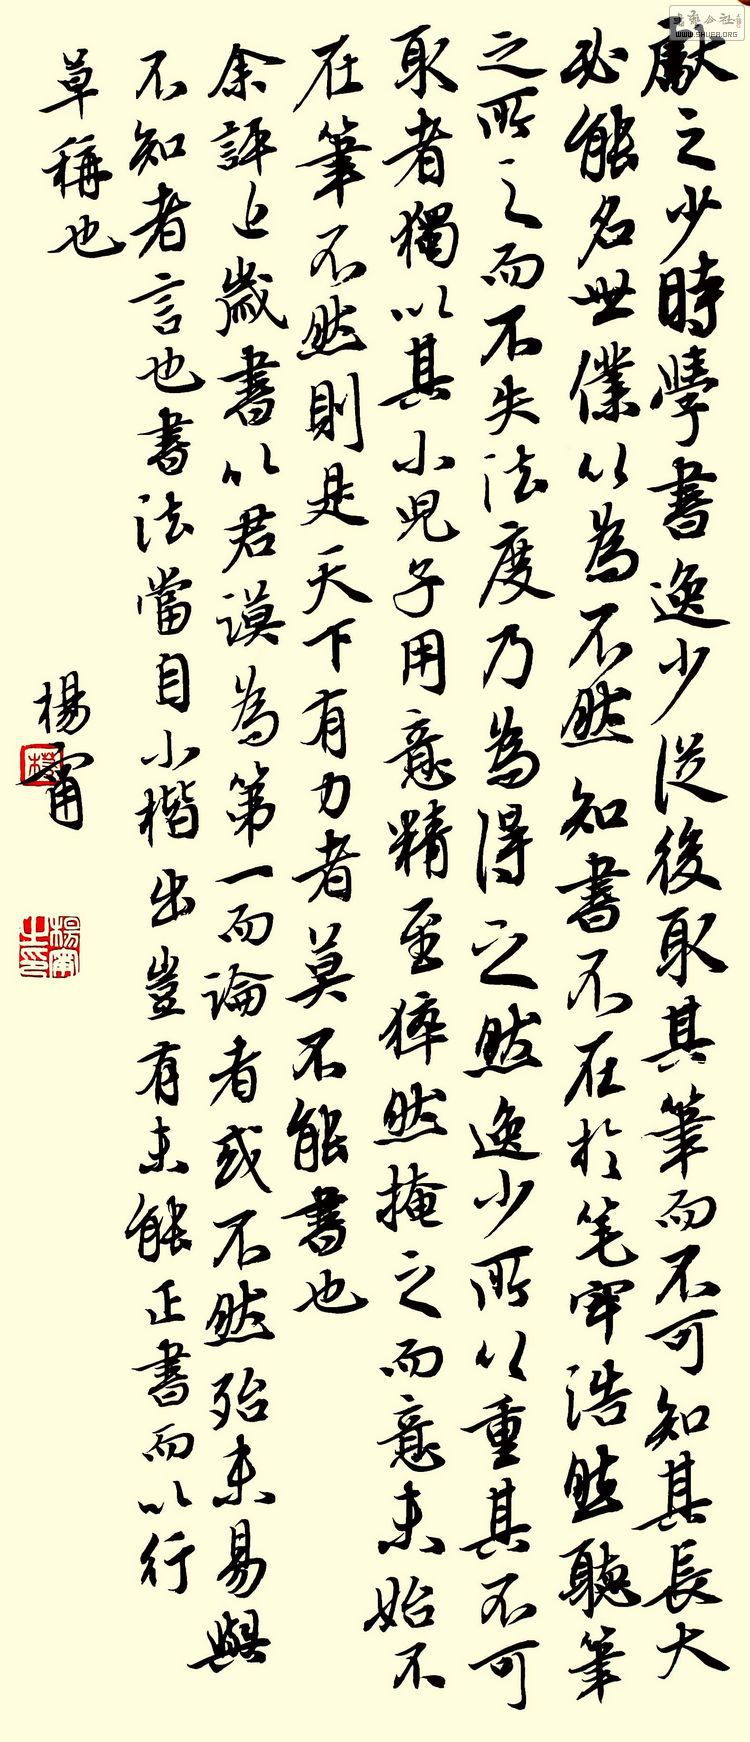 獻之少時學書逸少從後取其筆而不可知其長大
必能名世僕以為不然知書不在於笔牢浩然聽筆
之所之而不失法度乃為得之然逸少所以重其不可
取者獨以其小兒子用意精至猝然掩之而意未始不
在筆不然則是天下有力者莫不能書也
余評近歲書以君謨為第一而論者或不然殆未易與
不知者言也書法當自小楷出豈有未能正書而以行
草稱也
楊甯
WWW.SHUFA.ORG